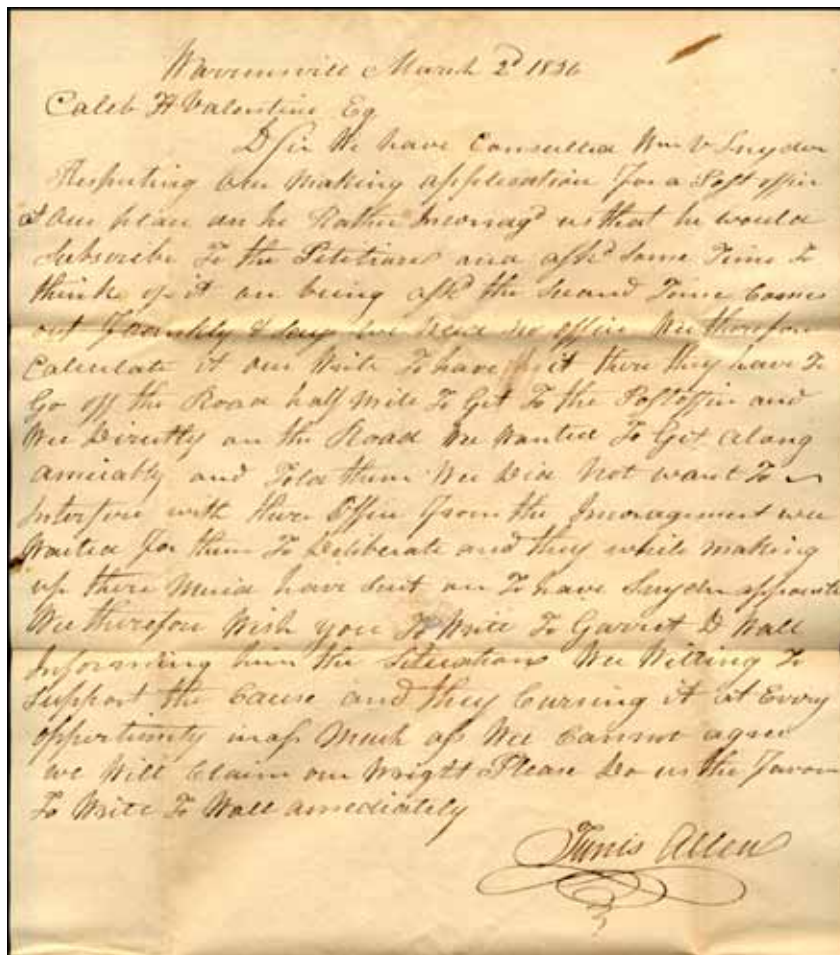 Warrinsvill March 2d 1836
Caleb H Valentine Eq
D Sir We have Consulted Wm V Snyder
Respecting Our Making application for a Post offis
& Our plan an he Rather Incorragd us that he would
Subscribe To the Petition and askd Some Time To
think of it on being askd the Second Time Comes
out Franckly & Says we need no offis We therefore
Calculate it our Write To have it there they have To
Go off the Road half Mile To Get To the Postoffis and
Wee Directly on the Road We Wanted To Get along
amicably and Told them Wee Did Not want To
Interfere with there Office From the Incoragement wee
Waited For them To Deliberate and they while making
up there Minid have Sent on To have Snyder appointed
Wee therefore Wish you To Write To Garret D Wall
Informing him the Situation Wee Willing To
Support the Cause and they Cursing it at Every
opportunity in as Much as Wee Cannot agree
we Will Claim our Wright Please Do us the Favour
To Write To Wall amediately
Tunis Allen